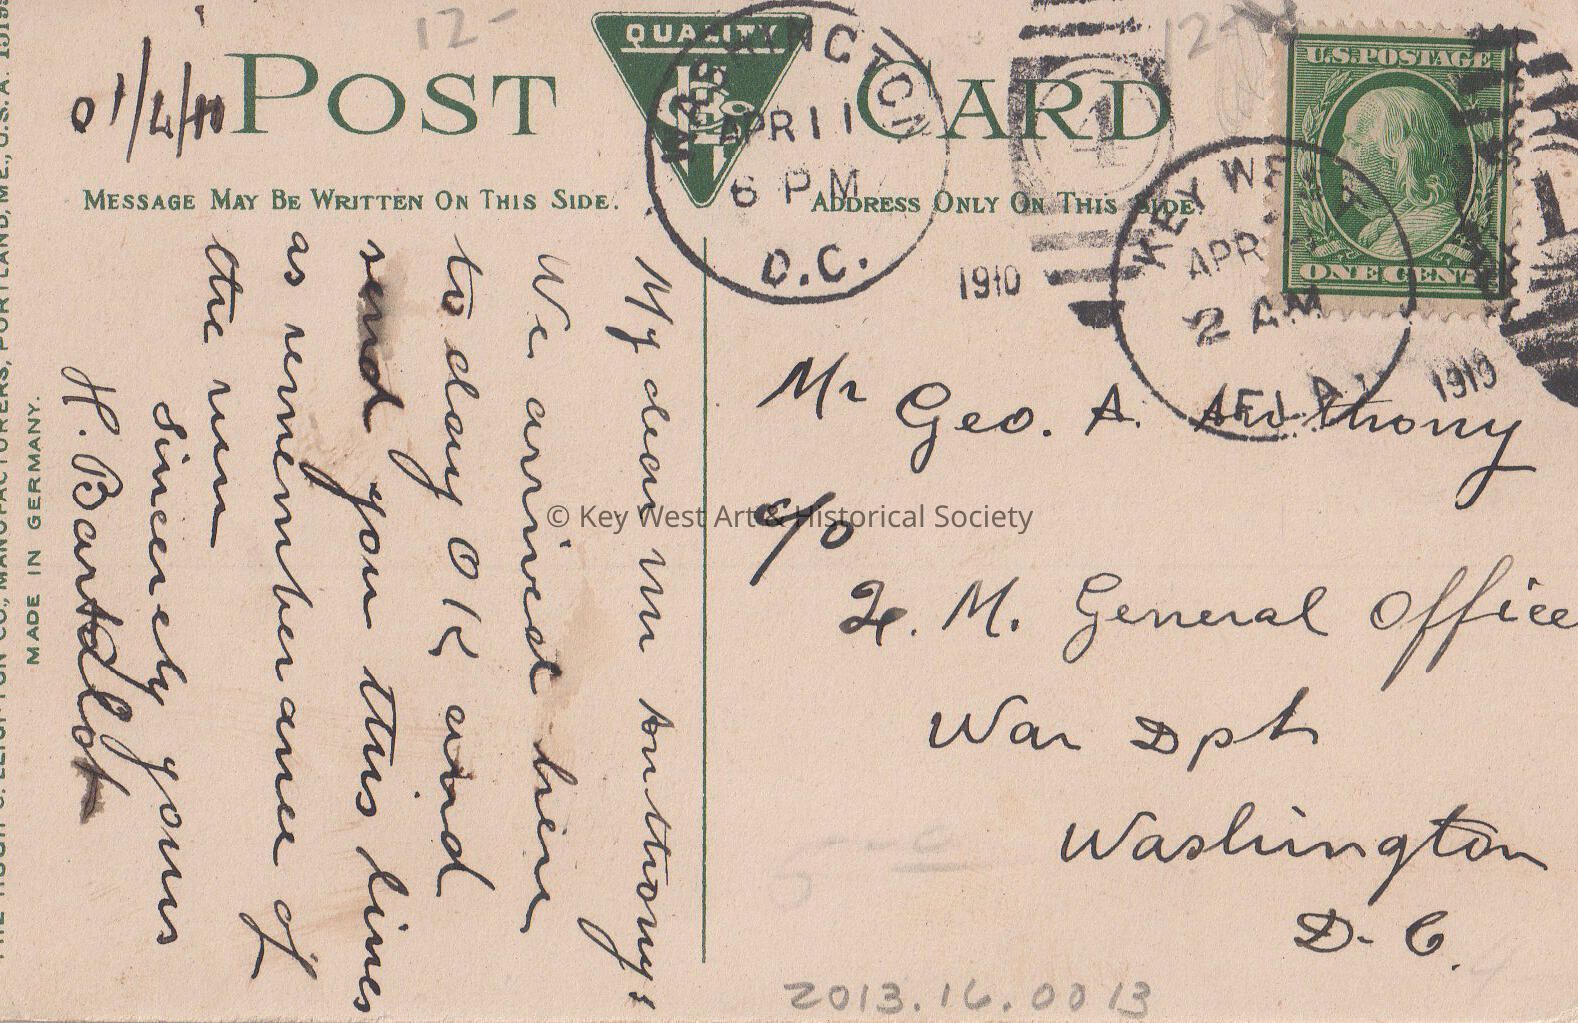 12-
12-
QUALITY
POST CARD
MESSAGE MAY BE WRITTEN ON THIS SIDE.
ADDRESS ONLY ON THIS SIDE.
WASHINGTON
APR 11
6 PM
D.C.
1910
KEY WEST
APR
2 AM
FLA.
1910
1
U.S. POSTAGE
ONE CENT
My dear Mr Anthony:
We arrived here
to day O K and
send you this lines
as rememberance of
the run
Sincerely yours
H. Bartdlot
Mr Geo. A. Anthony
c/o
Q. M. General Office
War Dpt
Washington
D. C.
© Key West Art & Historical Society
2013.16.0013
MADE IN GERMANY.
THE HUGH C. LEIGHTON CO., MANUFACTURERS, PORTLAND, ME., U.S.A.